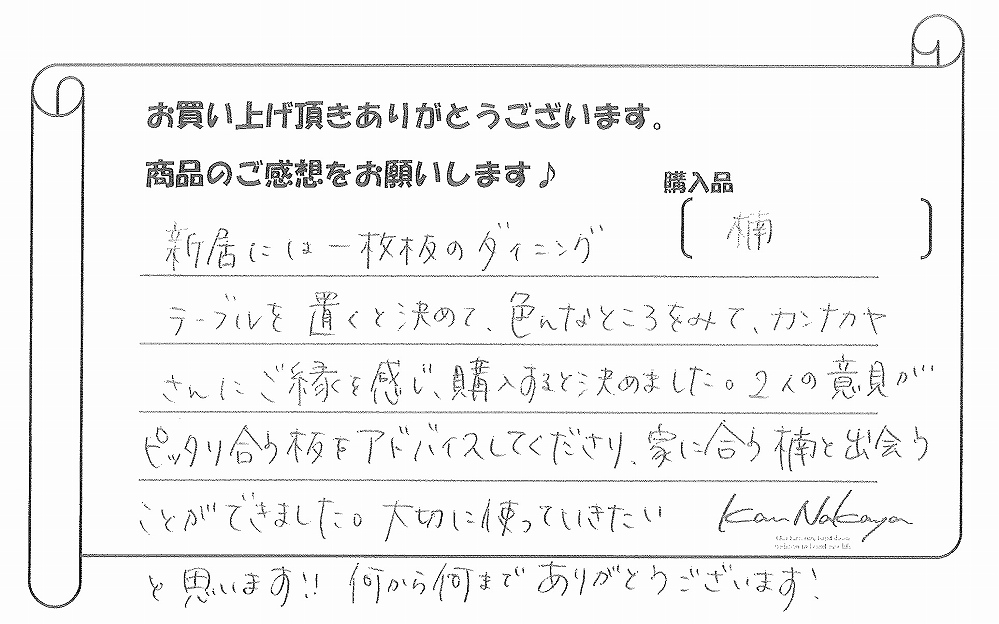 お買い上げ頂きありがとうございます。
商品のご感想をお願いします♪
購入品
楠
新居には一枚板のダイニング
テーブルを置くと決めて、色んなところをみて、カンナカヤ
さんにご縁を感じ、購入すると決めました。2人の意見が
ピッタリ合う板をアドバイスしてくださり、家に合う楠と出会う
ことができました。大切に使っていきたい
KanNakaya
と思います!! 何から何までありがとうございます!